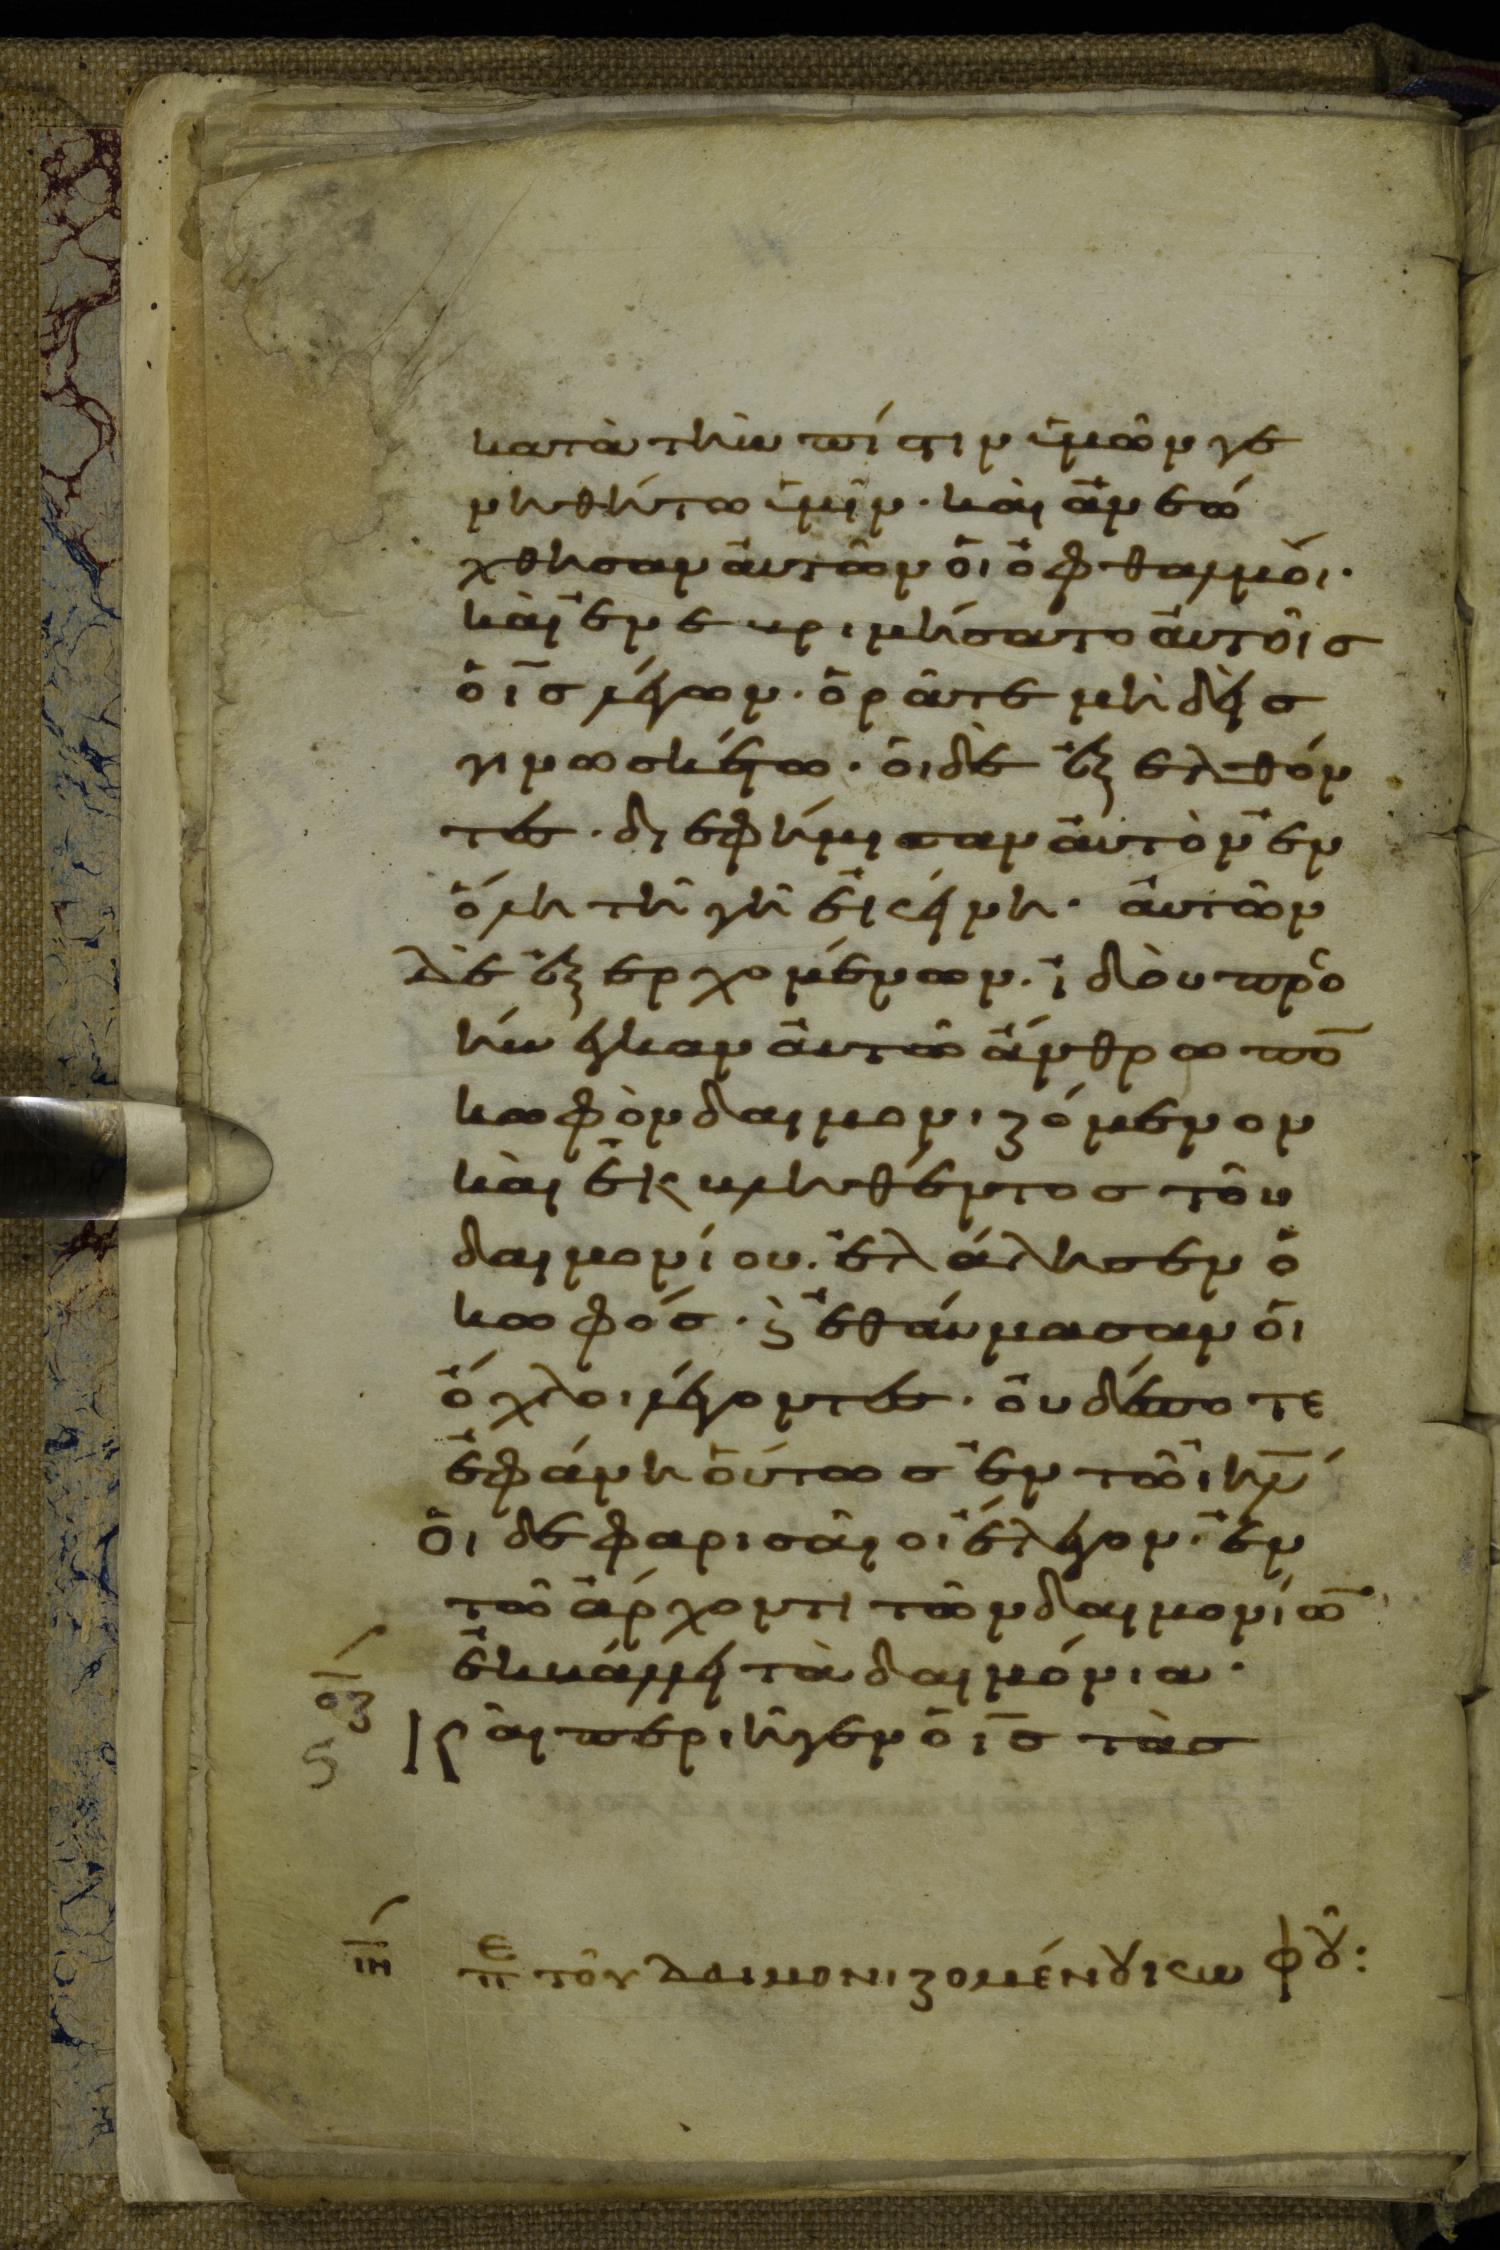 κατὰ τὴν πίστιν ὑμῶν γε
νηθήτω ὑμῖν· καὶ ἀνεώ
χθησαν ἀυτῶν ὁι ὀφθαλμόι·
καὶ ἐνεβριμήσατο ἀυτοῖσ
ὁ ι̅σ̅ λέγων· ὁρᾶτε μὴδὲισ
γινωσκέτω· ὁι δὲ ἐξελθόν
τεσ· διεφήμησαν ἀυτὸν ἐν
ὅλη τῆ γῆ ἐκείνη· ἀυτῶν
Δὲ ἐξερχομένων· ἰδὸυ προσ
ήνεγκαν ἀυτῶ ἄνθρωπο̅
κωφὸν δαιμονιζόμενον
καὶ ἐκβληθέντοσ τοῦ
δαιμονίου· ἐλάλησεν ὁ
κωφόσ· ϗ̀ ἐθάυμασαν ὁι
ὄχλοι λέγοντεσ· ὀυδέποτε
ἐφάνη ὅυτωσ ἐν τῶ ι̅η̅λ̅
Ὁι δε φαρισᾶιοι ἔλεγον· ἐν
τῶ ἄρχοντι τῶν δαιμονίω̅
ἐκβάλλει τὰ δαιμόνια·
ο̅ζ̅
ς
Καὶ περιῆγεν ὁ ι̅σ̅ τὰσ
ι̅η̅ πε τοῦ Δαιμονιζομένȣ κωφȣ͂: